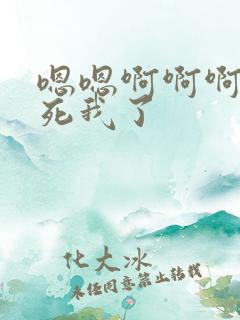 嗯嗯啊啊啊
死我了
化大冰
未经同意禁止转载